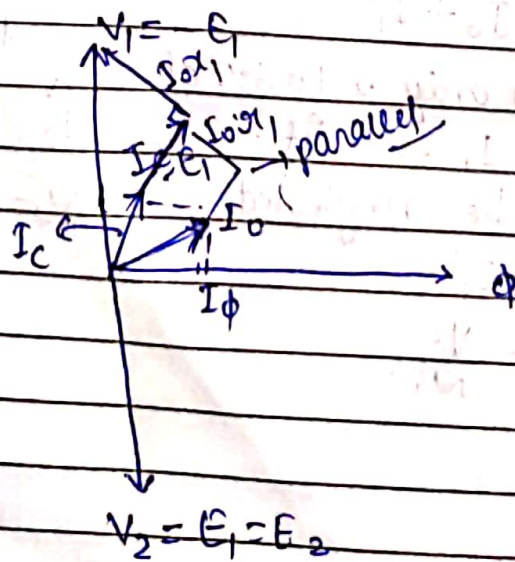 V₁ = - E₁
I₀x₁
I₀r₁
parallel
E₁
I₀
I_C
I_ϕ
ϕ
V₂ = E₁ = E₂